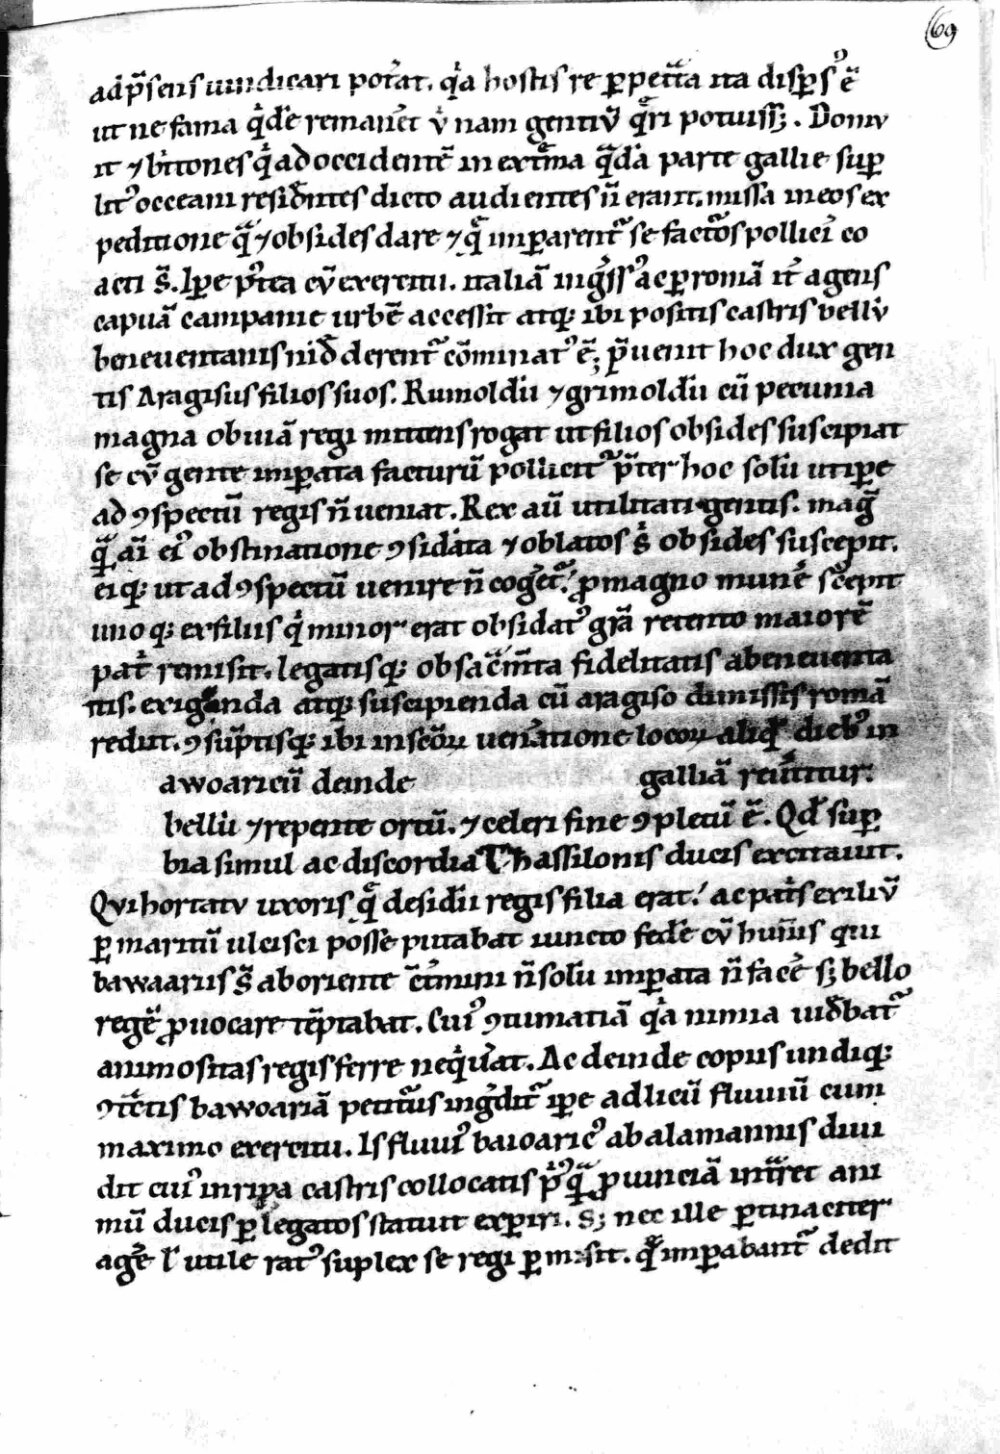 69
ad p̄sens uindicari pot̄at. qͥa hostis re ꝑpet̄ta ita disp̄sꝰ ē
ut ne fama qͥdē remaneīet ỻ nam gentiū q̄ri potuiss; . Domu
it ⁊ b̄ttones qͥ ad occidentē in ext̄ma q̄dā parte gallie suꝑ
litꝰ occeani resid̄ntes dicto audientes n̄ erant. missa in eos ex
peditione q̄ ⁊ obsides dare ⁊ q̄ imꝑarent᷑ se factōs polliceī co
acti s̄. Ip̄e pꝰtea cū exercitu. italiā inḡssꝰ ac ꝑ romā it̄ agens
capuā campanie urbē accessit atq; ibi positis castris bellū
beneuentanis nid̄ derent᷑ cōminatꝰ ē; p̄uenit hoc dux gen
tis Aragisus filios suos. Rumoldū ⁊ grimoldū cū pecunia
magna obuiā regi mittens rogat ut filios obsides suscipiat
se cū gente imꝑata facturū pollicit᷑ p̄ter hoc solū ut ip̄e
ad ꝯspectū regis n̄ ueniat. Rex aū utilitati gentis. maḡ
q̄ ai᷑ eiꝰ obstinatione ꝯsidāta ⁊ oblatos sͥ obsides suscepit.
eiq; ut ad ꝯspectū uenire n̄ coget᷑ ꝓ magno muneī scēpit
uno q; ex filiis qͥ minor erat obsidatꝰ gr̄a retento maiorē
patͥ remisit. legatisq; ob sac̄m̄ta fidelitatis abeneuenta
tis. exigenda atq; suscipienda cū aragiso dimissis romā
rediit. ꝯsūptisq; ibi in sc̄oꝝ uen̄atione locoꝝ aliq̄ diebꝰ in
awoaricū deinde galliā reūtitur.
bellū ⁊ repente ortū. ⁊ celeri fine ꝯpletū ē. Qd̄ suꝑ
bia simul ac discordia Thassilonis ducis excitauit.
Qui hortatu uxoris q̄ desid̄ii regis filia erat. ac patͥs exiliū
ꝑ maritū ulcisci posse putabat iuncto fed̄e cū hun̄is qui
bawaariis s̄ ab oriente c̄tmini n̄ solū imꝑata n̄ face᷑ s; bello
regē ꝓuocare tēptabat. Cuiꝰ ꝯtumatiā qͥa nimia uid̄bat᷑
animositas regis ferre neqͥuēat. Ac deinde copiis undiq;
ꝯtͣctis bawoariā petitur᷑us inḡdit᷑ ip̄e ad licū fluuiū cum
maximo exercitu. Is fluuiꝰ baioaricꝰ ab alamannis diui
dit cuiꝰ in ripa castris collocatis pͥꝰq̄ ꝓuinciā int̄ret ani
mū ducis ꝑ legatos statuit experiri. S; nec ille ꝑtinaciter
age᷑ ł utile ratꝰ suplex se regi ꝑmisit. q̄ imꝑabant᷑ dedit